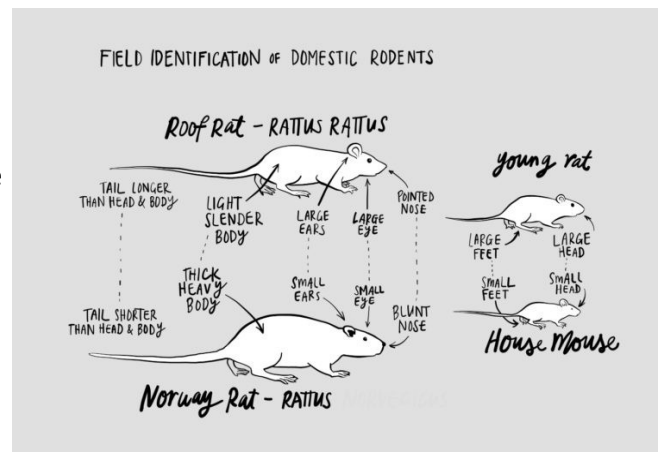 FIELD IDENTIFICATION OF DOMESTIC RODENTS
Roof Rat - RATTUS RATTUS
TAIL LONGER
THAN HEAD & BODY
LIGHT
SLENDER
BODY
LARGE
EARS
LARGE
EYE
POINTED
NOSE
TAIL SHORTER
THAN HEAD & BODY
THICK
HEAVY
BODY
SMALL
EARS
SMALL
EYE
BLUNT
NOSE
Norway Rat - RATTUS
young rat
LARGE
FEET
LARGE
HEAD
SMALL
FEET
SMALL
HEAD
House Mouse